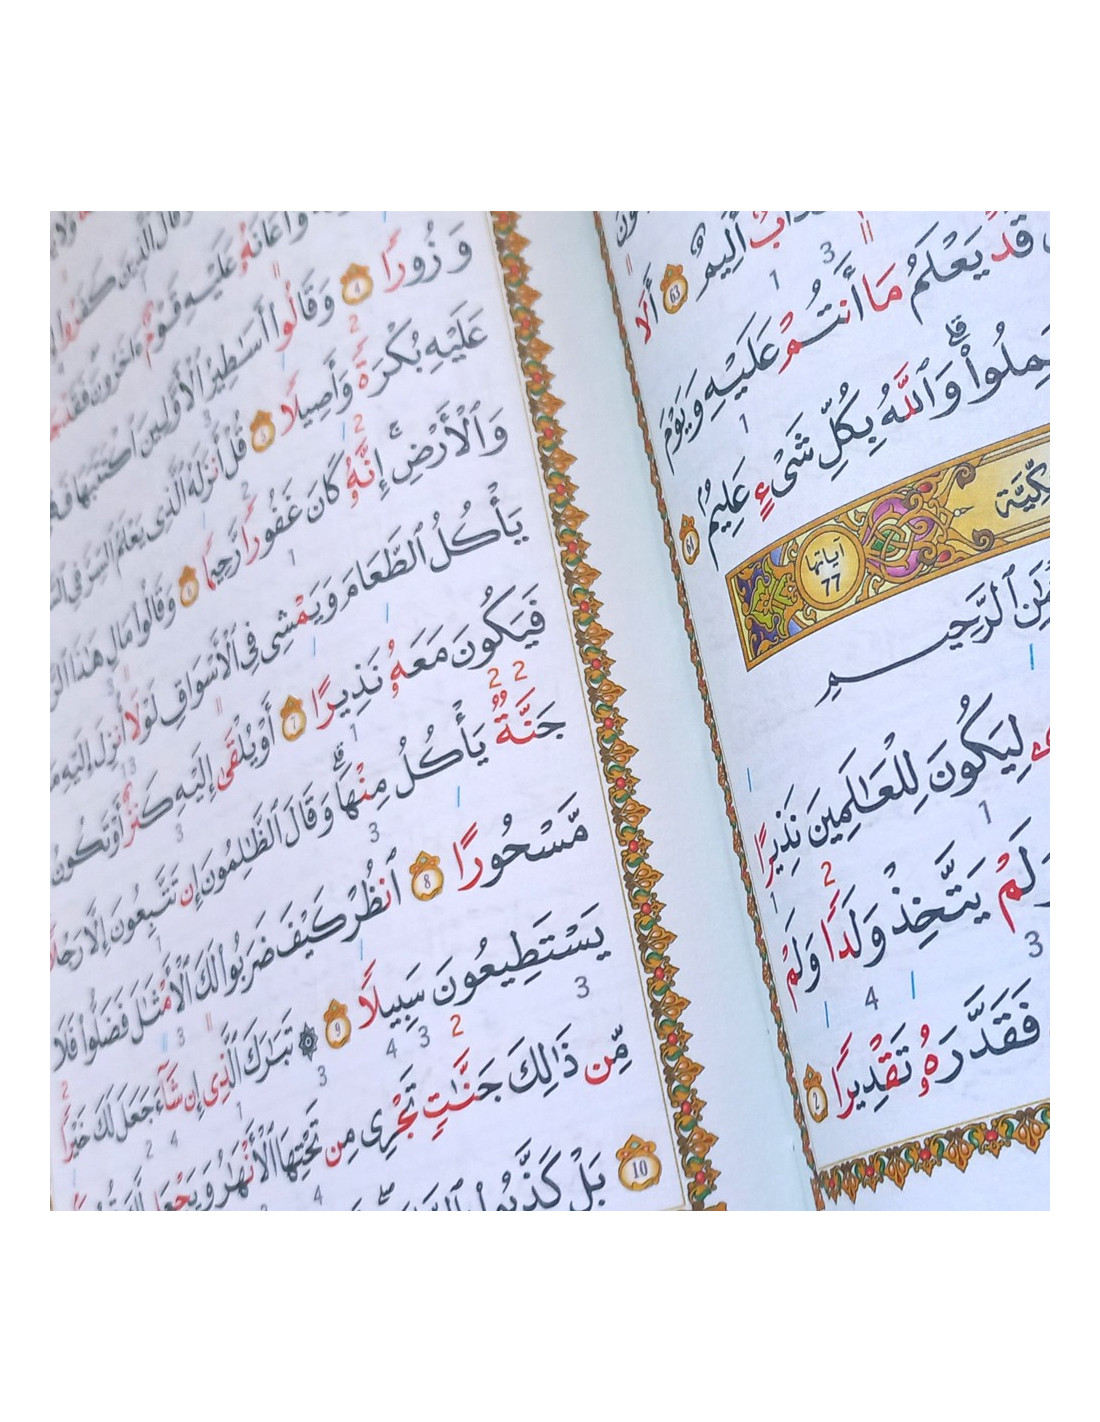 عَذَابٌ أَلِيمٌ 63 أَلَا
قَدْ يَعْلَمُ مَا أَنتُمْ عَلَيْهِ وَيَوْمَ
عَمِلُوا۟ وَٱللَّهُ بِكُلِّ شَىْءٍ عَلِيمٌۢ 64
مَكِّيَّة
آياتها 77
ٱلرَّحِيمِ
لِيَكُونَ لِلْعَـٰلَمِينَ نَذِيرًا 1
وَلَمْ يَتَّخِذْ وَلَدًا وَلَمْ
فَقَدَّرَهُۥ تَقْدِيرًا 2
وَأَعَانَهُۥ عَلَيْهِ قَوْمٌ ءَاخَرُونَ
وَزُورًا 4 وَقَالُوٓا۟ أَسَـٰطِيرُ ٱلْأَوَّلِينَ ٱكْتَتَبَهَا
عَلَيْهِ بُكْرَةً وَأَصِيلًا 5 قُلْ أَنزَلَهُ ٱلَّذِى يَعْلَمُ ٱلسِّرَّ فِى
وَٱلْأَرْضِ ۚ إِنَّهُۥ كَانَ غَفُورًا رَّحِيمًا 6 وَقَالُوا۟ مَالِ هَـٰذَا
يَأْكُلُ ٱلطَّعَامَ وَيَمْشِى فِى ٱلْأَسْوَاقِ ۙ لَوْلَآ أُنزِلَ إِلَيْهِ
فَيَكُونَ مَعَهُۥ نَذِيرًا 7 أَوْ يُلْقَىٰٓ إِلَيْهِ كَنزٌ أَوْ تَكُونُ
جَنَّةٌ يَأْكُلُ مِنْهَا ۚ وَقَالَ ٱلظَّـٰلِمُونَ إِن تَتَّبِعُونَ إِلَّا رَجُلًا
مَّسْحُورًا 8 ٱنظُرْ كَيْفَ ضَرَبُوا۟ لَكَ ٱلْأَمْثَـٰلَ فَضَلُّوا۟ فَلَا
يَسْتَطِيعُونَ سَبِيلًا 9 تَبَارَكَ ٱلَّذِىٓ إِن شَآءَ جَعَلَ لَكَ خَيْرًا
مِّن ذَٰلِكَ جَنَّـٰتٍ تَجْرِى مِن تَحْتِهَا ٱلْأَنْهَـٰرُ وَيَجْعَل
10 بَلْ كَذَّبُوا۟